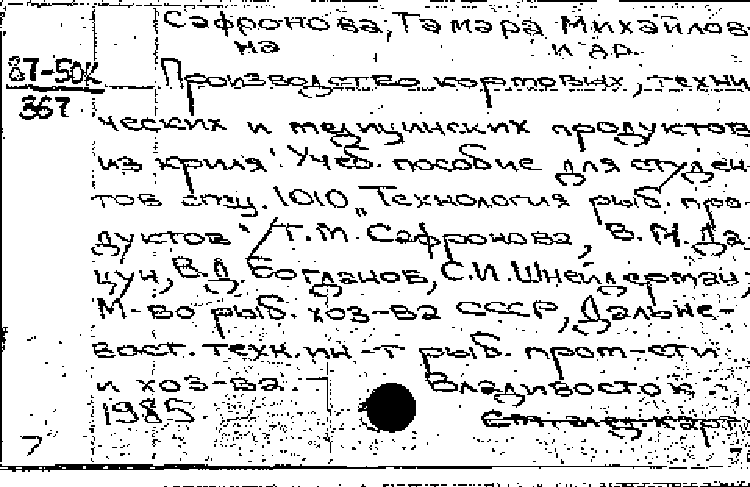 Сафронова, Тамара Михайлов-
на и др.
87-50к Производство кормовых, техни-
367
ческих и медицинских продуктов
из криля: Учеб. пособие для студен-
тов спец. 1010 "Технология рыб. про-
дуктов" / Т.М. Сафронова, В.М. Да-
цун, В.Д. Богданов, С.И. Шнейдерман;
М-во рыб. хоз-ва СССР, Дальне-
вост. техн. ин-т рыб. пром-сти
и хоз-ва. Владивосток
1985
См. след. карт.
7